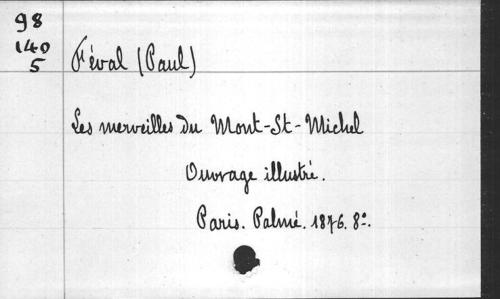 98
140
5
Féval (Paul)
Les merveilles du Mont-St-Michel
Ouvrage illustré.
Paris. Palmé. 1876. 8º.